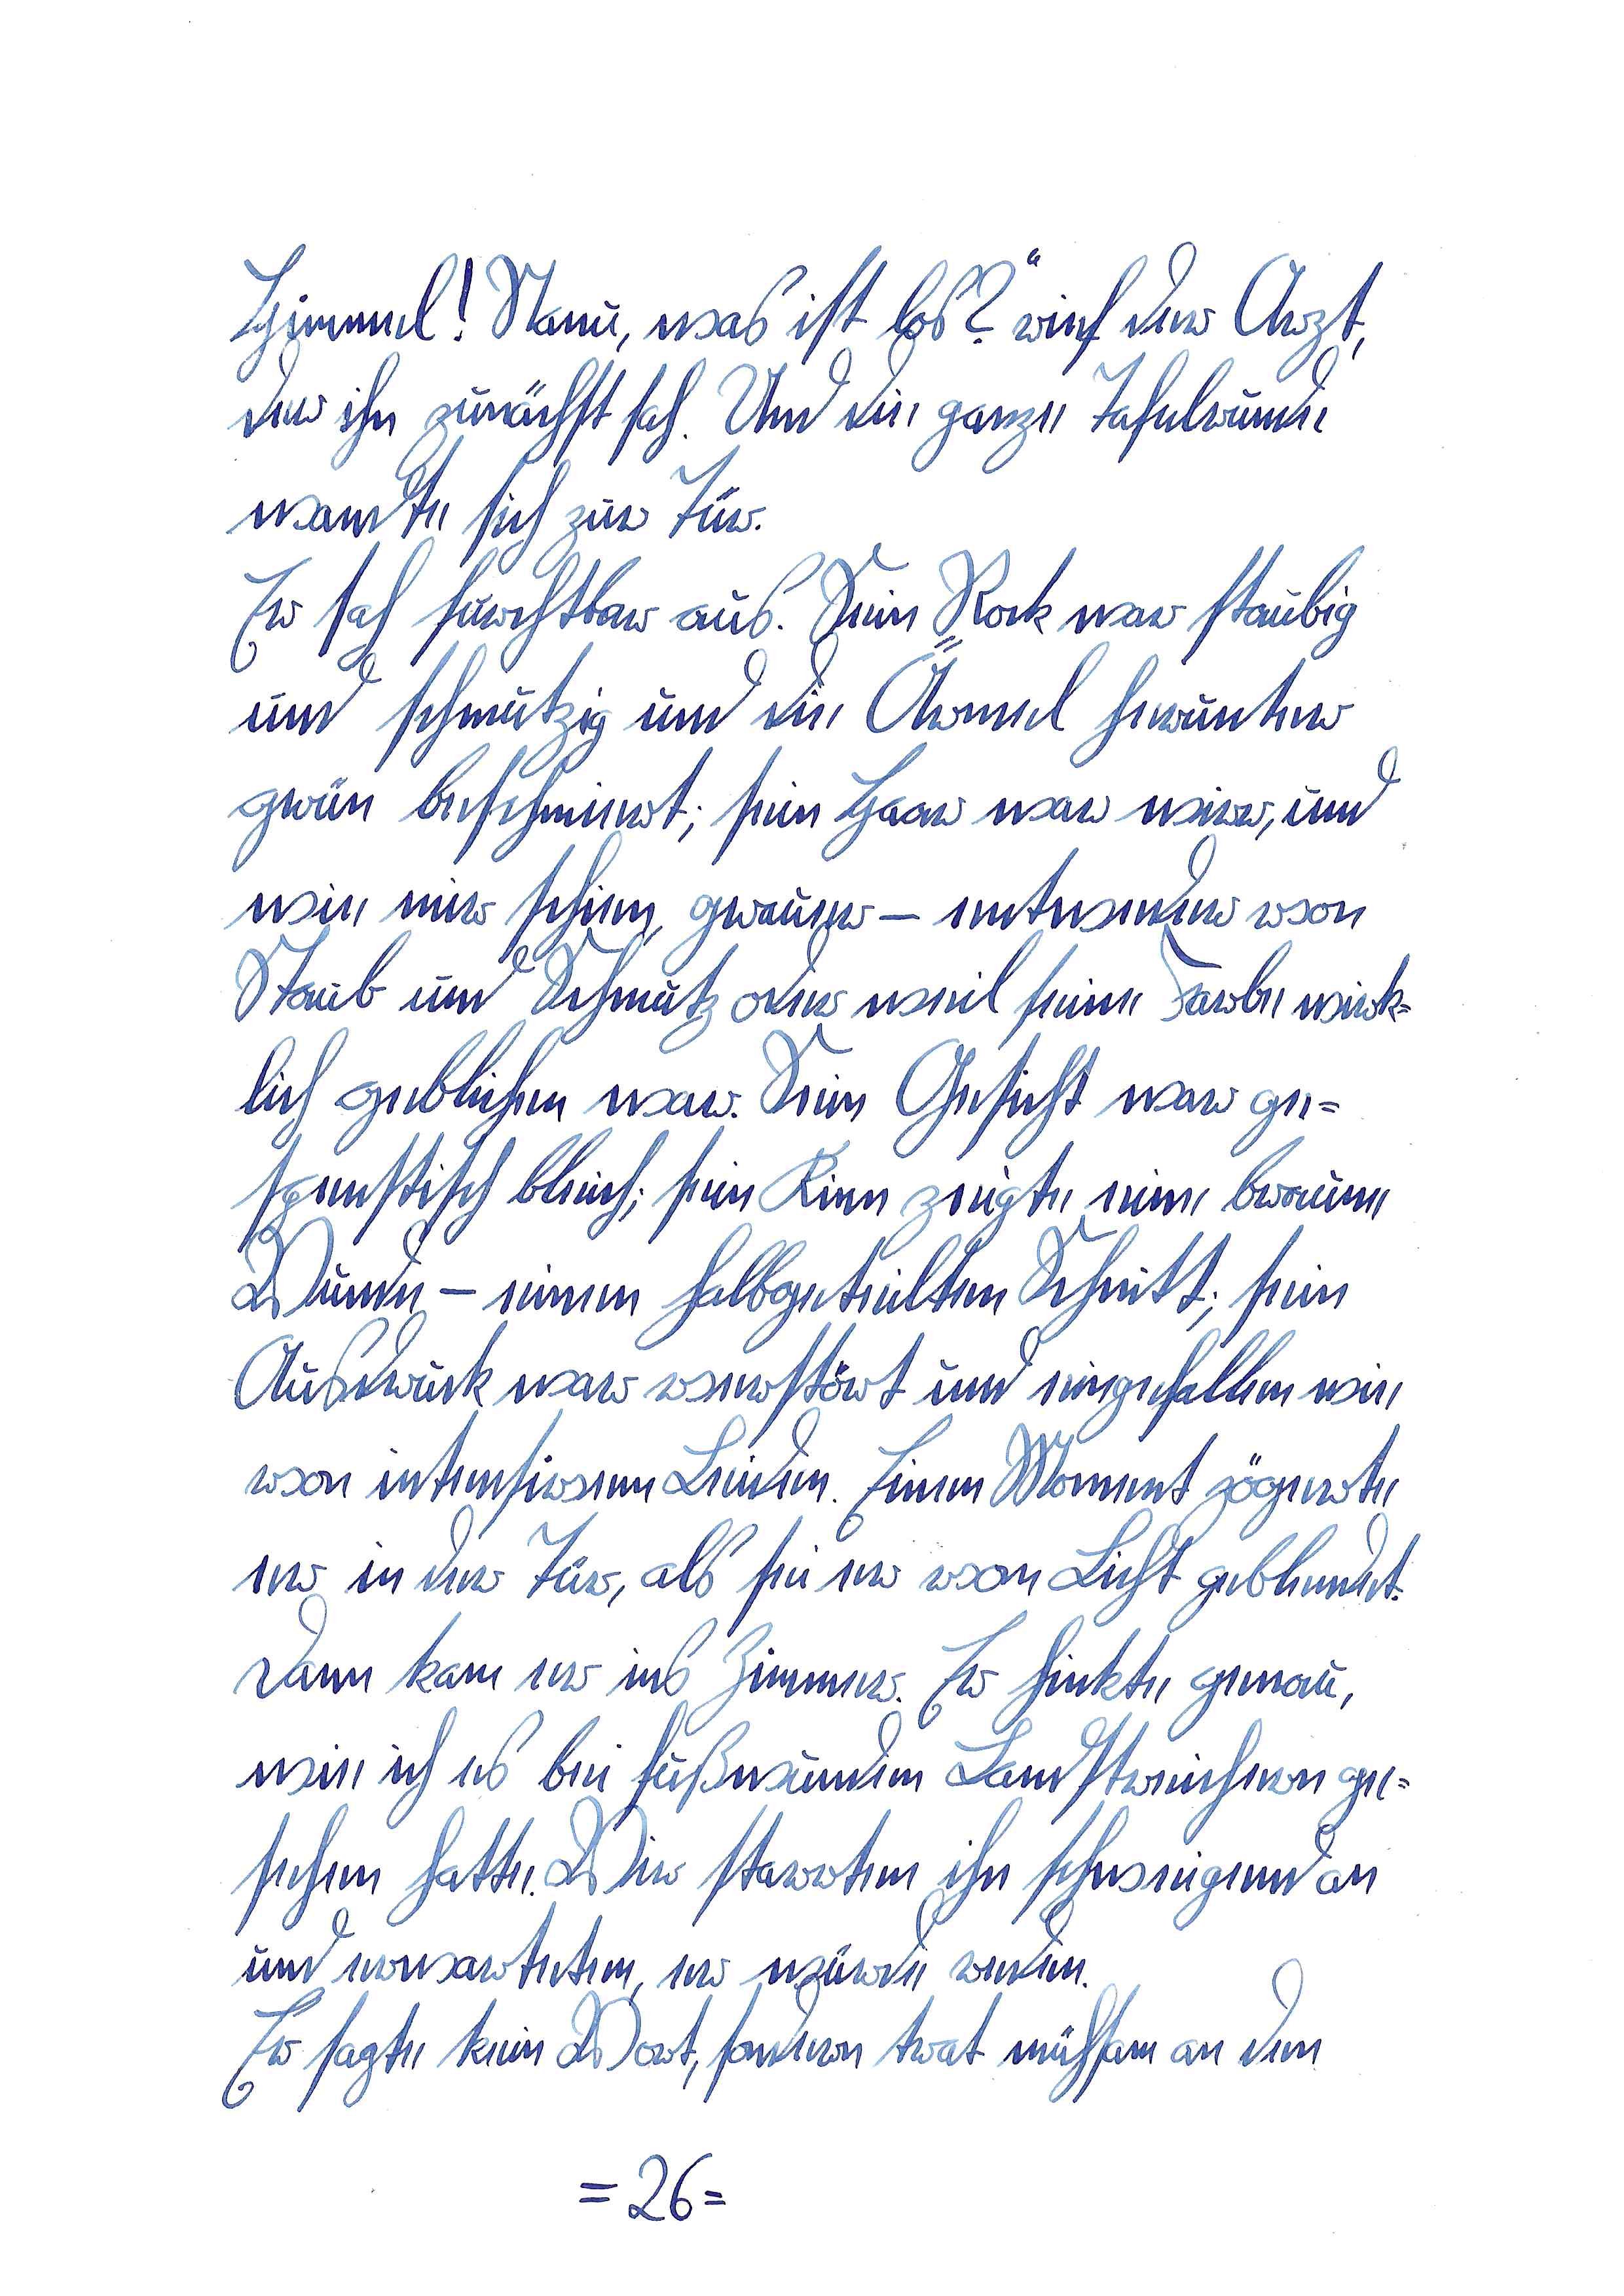 Himmel! Nanu, was ist los?“ rief der Arzt,
der ihn zunächst sah. Und die ganze Tafelrunde
wandte sich zur Tür.
Er sah furchtbar aus. Sein Rock war staubig
und schmutzig und die Ärmel herunter
grün beschmiert; sein Haar war wirr, und
wie mir schien, grauer – entweder von
Staub und Schmutz oder weil seine Farbe wirk=
lich geblichen war. Sein Gesicht war ge=
spenstisch bleich; sein Kinn zeigte eine braune
Wunde – einen halbgeteilten Schnitt; sein
Ausdruck war verstört und eingefallen wie
von intensivem Leiden. Einen Moment zögerte
er in der Tür, als sei er von Licht geblendet.
Dann kam er ins Zimmer. Er hinkte genau,
wie ich es bei fußwunden Landstreichern ge=
sehen hatte. Wir starrten ihn schweigend an
und erwarteten, er würde reden.
Er sagte kein Wort, sondern trat mühsam an den
=26=